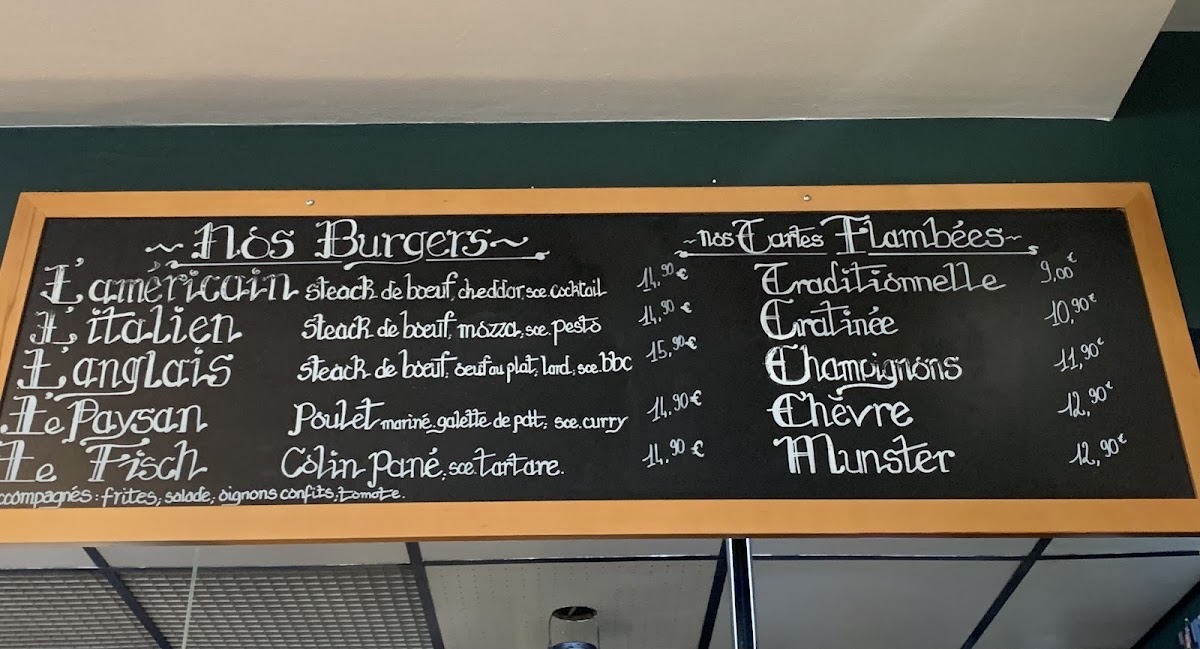 ~Nos Burgers~
L'américain steack de bœuf, cheddar, sce. cocktail 14,90 €
L'italien steack de bœuf, mozza, sce. pesto 14,90 €
L'anglais steack de bœuf, oeuf au plat, lard, sce. bbc 15,90 €
Le Paysan Poulet mariné, galette de pdt, sce. curry 14.90 €
Le Fisch Colin pané, sce. tartare. 14.90 €
ccompagnés : frites, salade, oignons confits, tomate.
~nos Tartes Flambées~
Traditionnelle 9,00€
Gratinée 10,90€
Champignons 11,90€
Chèvre 12,90€
Munster 12,90€